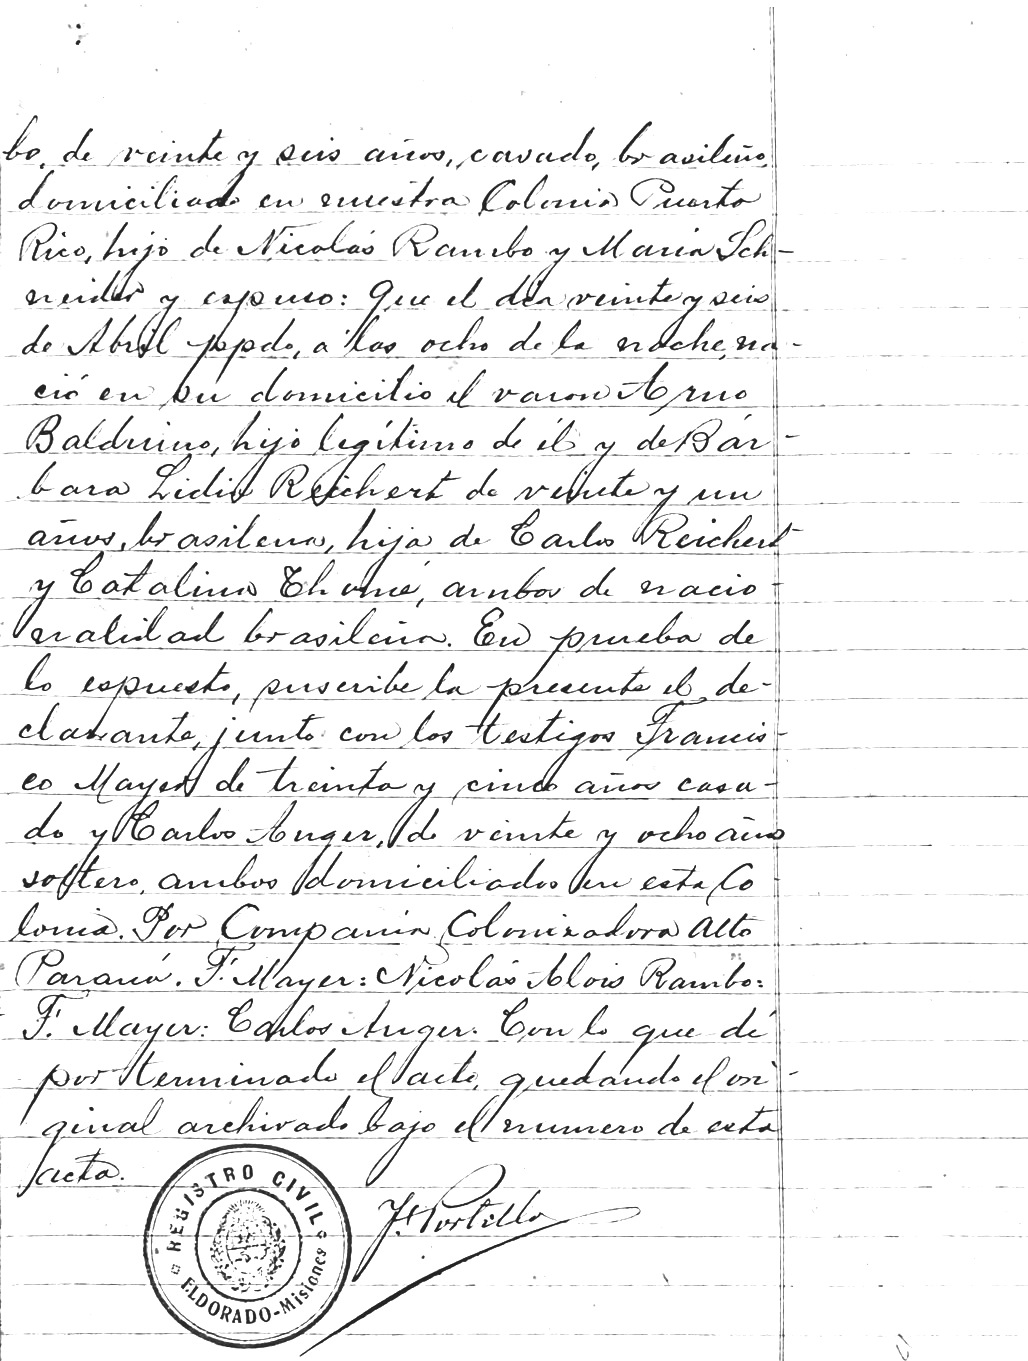 bo, de veinte y seis años, casado, brasileño,
domiciliado en nuestra Colonia Puerto
Rico, hijo de Nicolás Rambo y Maria Sch-
neider y espuso: Que el dia veinte y seis
de Abril ppdo, a las ocho de la noche, na-
ció en su domicilio el varon Arno
Balduino, hijo legítimo de él y de Bár-
bara Lidia Reichert de veinte y un
años, brasilena, hija de Carlos Reichert
y Catalina Thomé, ambos de nacio-
nalidad brasileña. En prueba de
lo espuesto, suscribe la presente el de-
clarante, junto con los testigos Francis-
co Mayer de treinta y cinco años casa-
do y Carlos Auger, de veinte y ocho años
soltero, ambos domiciliados en esta Co-
lonia. Por Compania Colonizadora Alto
Paraná. F. Mayer: Nicolás Alois Rambo:
F. Mayer: Carlos Auger. Con lo que dí
por terminado el acto, quedando el ori-
ginal archivado bajo el numero de esta
acta.
REGISTRO CIVIL
ELDORADO-Misiones
J. Portillo